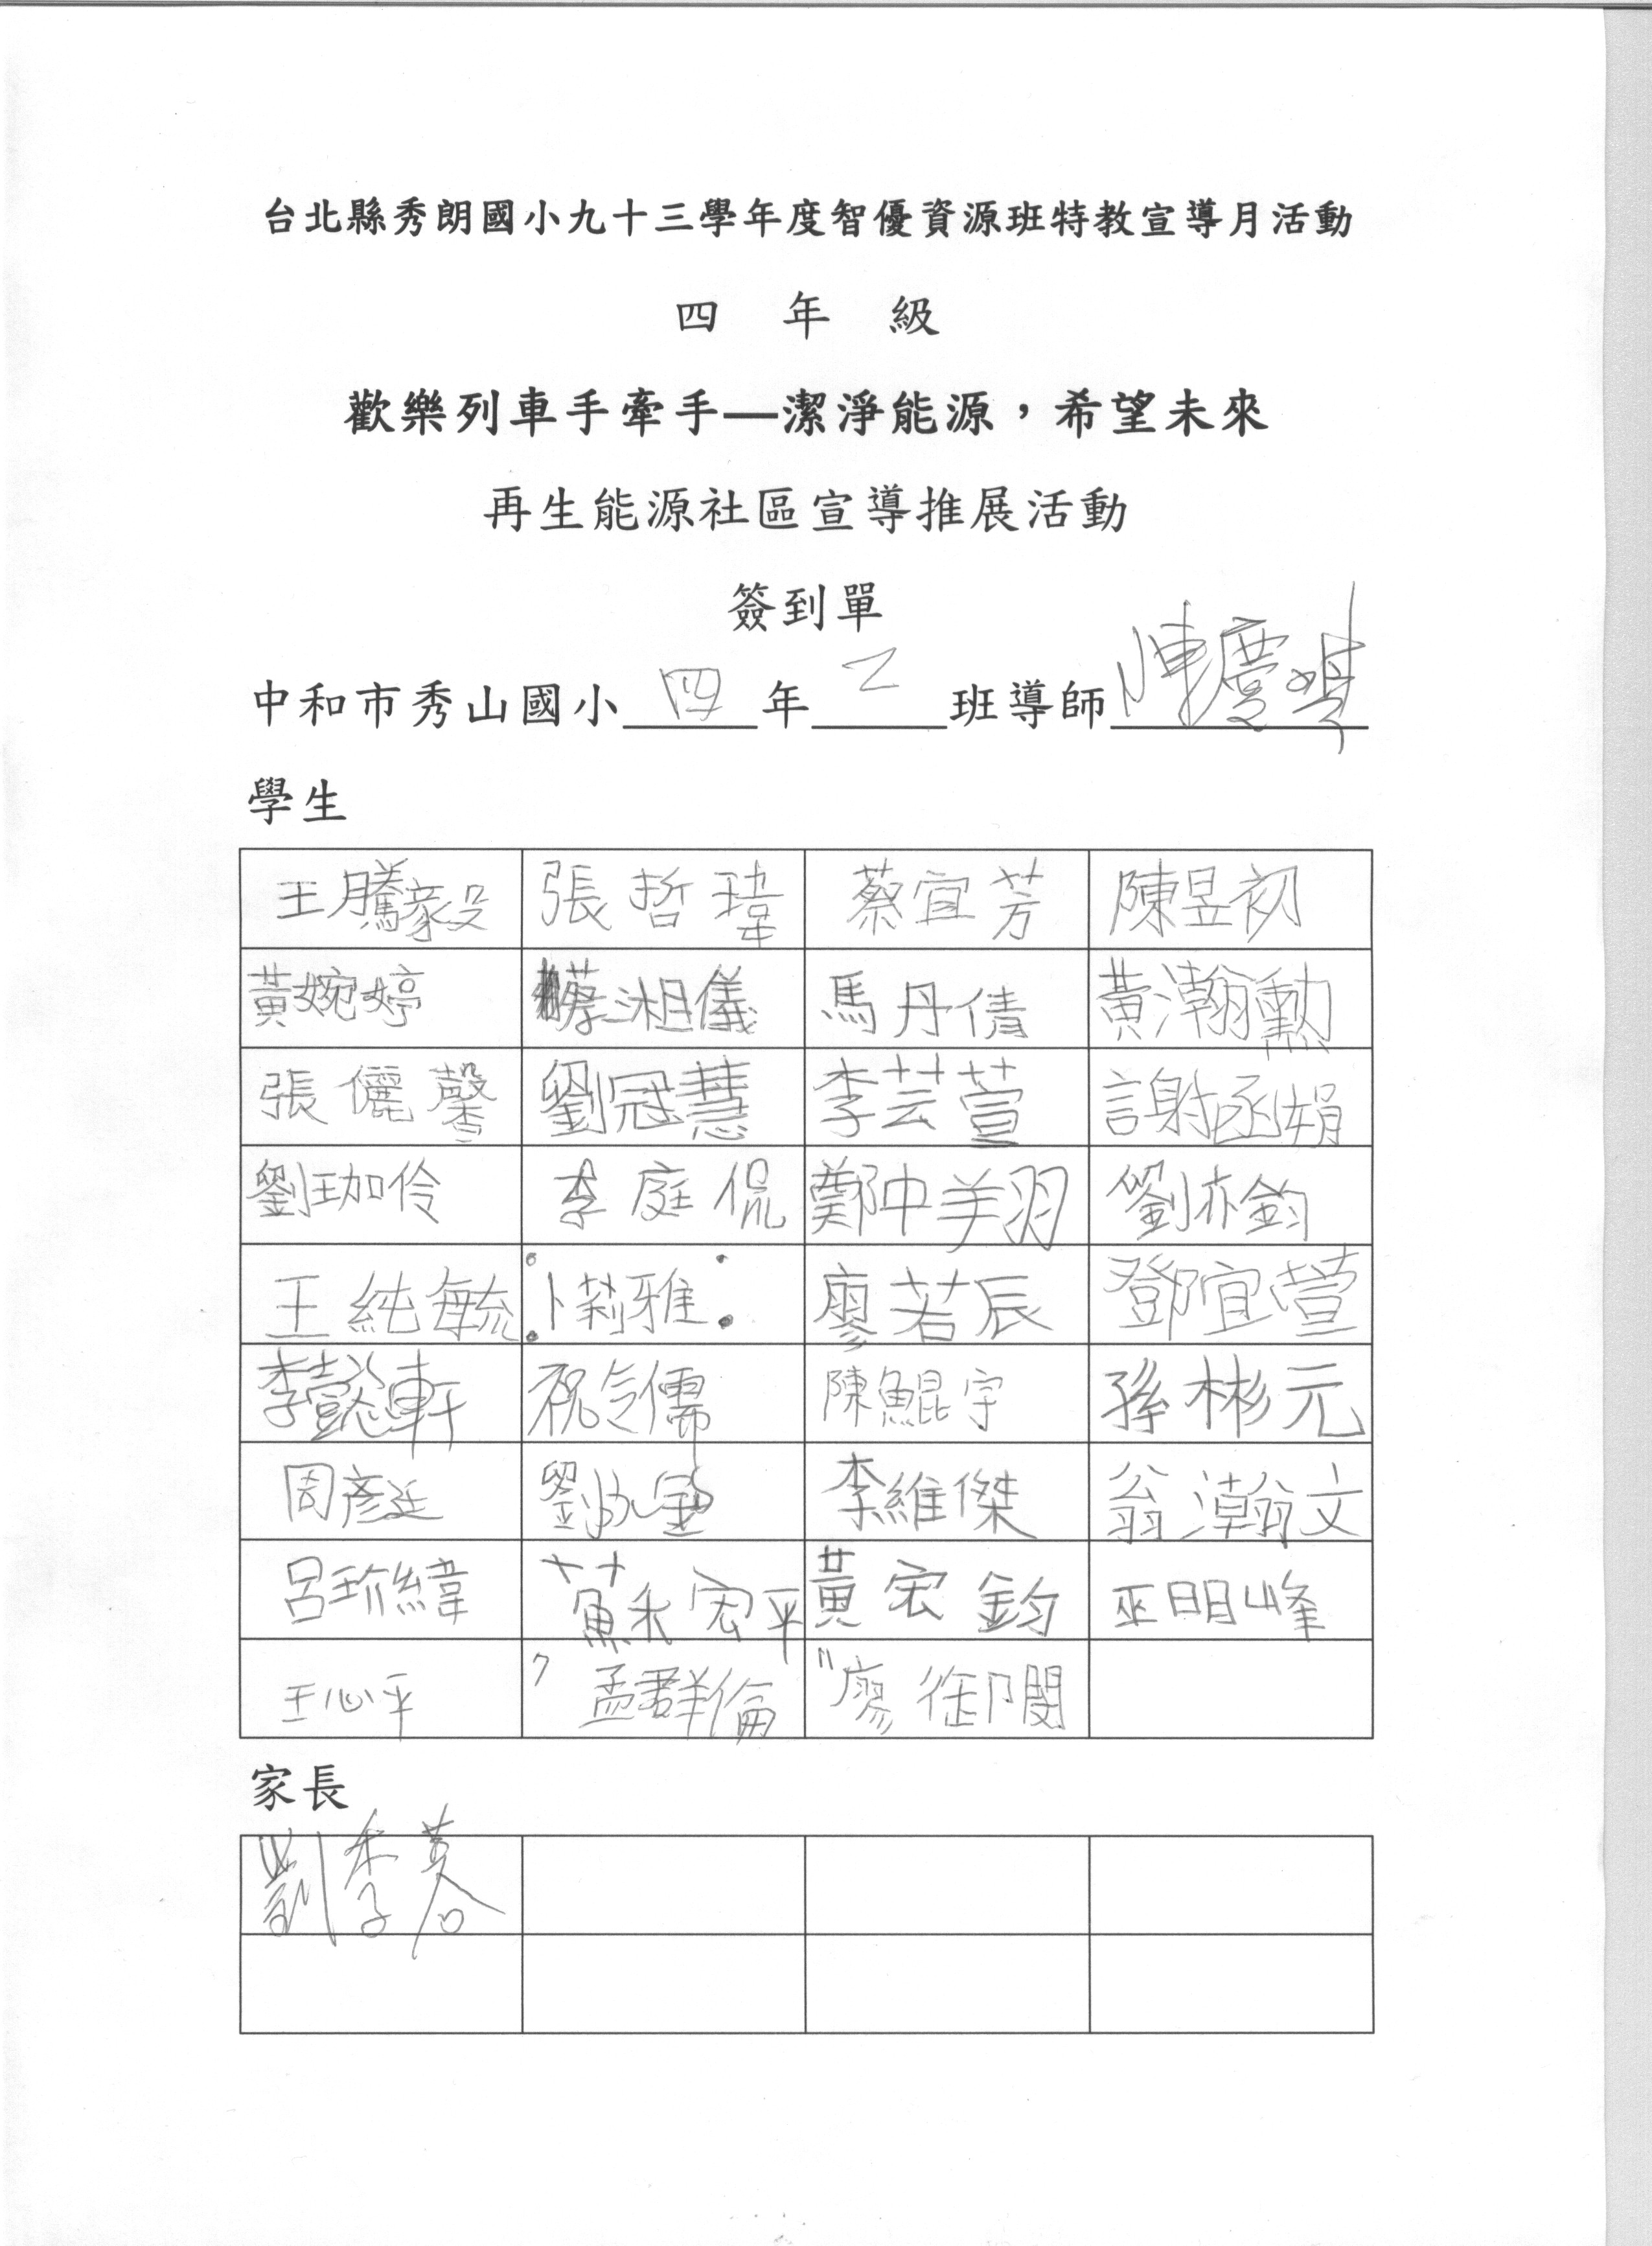 台北縣秀朗國小九十三學年度智優資源班特教宣導月活動
四 年 級
歡樂列車手牽手—潔淨能源，希望未來
再生能源社區宣導推展活動
簽到單
中和市秀山國小 四 年 乙 班導師 陳慶
學生
王騰毅 張哲瑋 蔡宜芳 陳昱初
黃婉婷 蔡湘儀 馬丹倩 黃瀚勳
張儷馨 劉冠慧 李芸萱 謝函娟
劉珈伶 李庭侃 鄭中羽 劉亦鈞
王純毓 卜莉雅 廖若辰 鄧宜萱
李懿軒 祝儒 陳鯤宇 孫彬元
周彥廷 劉 李維傑 翁瀚文
呂珍緯 蘇宏平 黃宏鈞 巫明峰
王心平 孟群倫 廖 閔
家長
劉季蓉